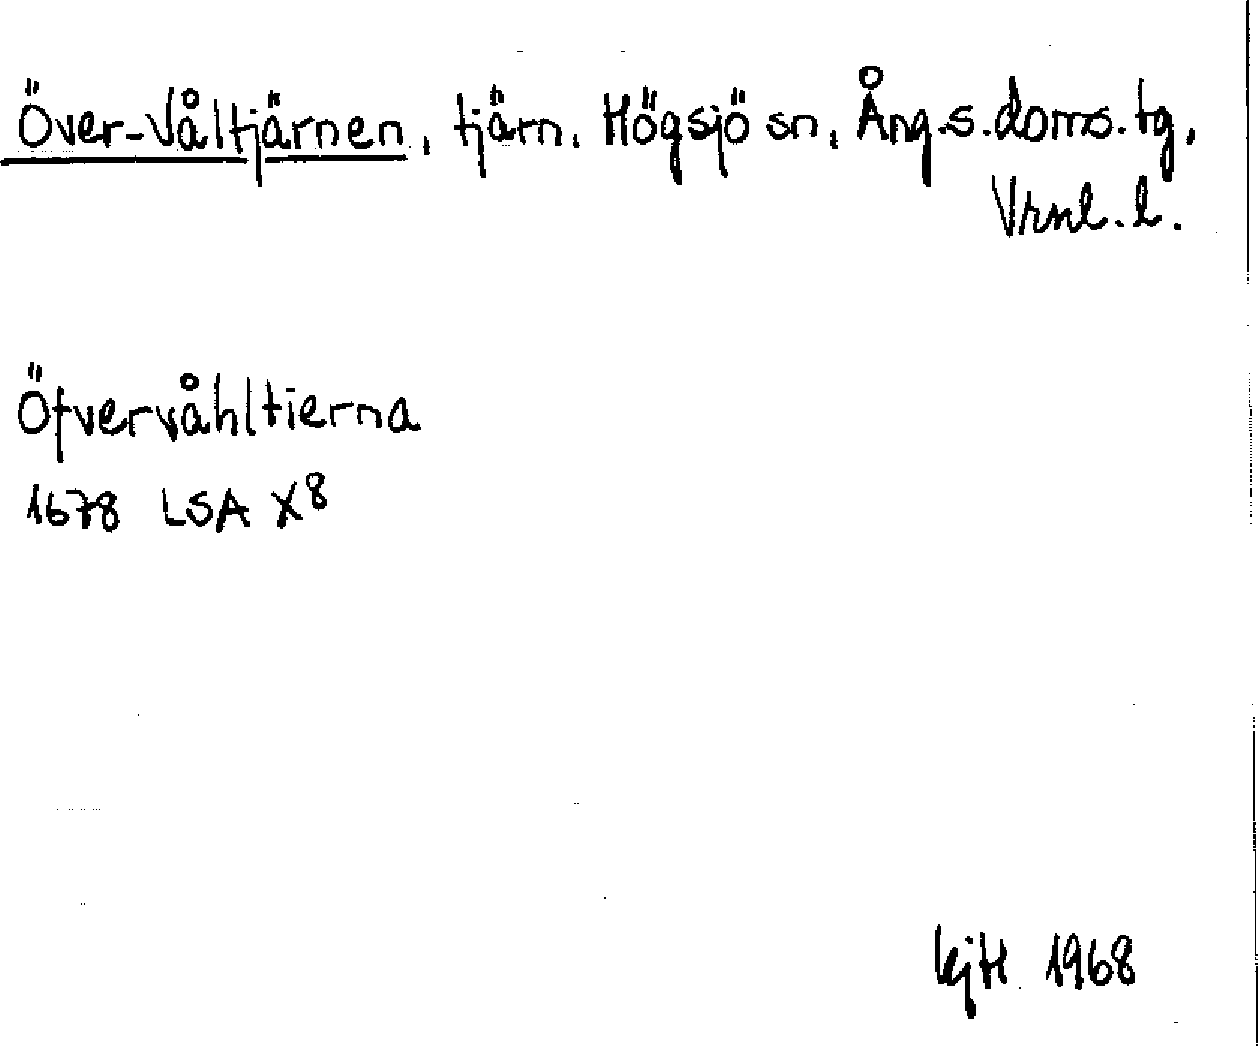 Över-Våltjärnen, tjärn, Högsjö sn, Ång.s.doms.tg,
Vrnl. l.
Öfvervåhltierna
1678 LSA X8
KjH 1968